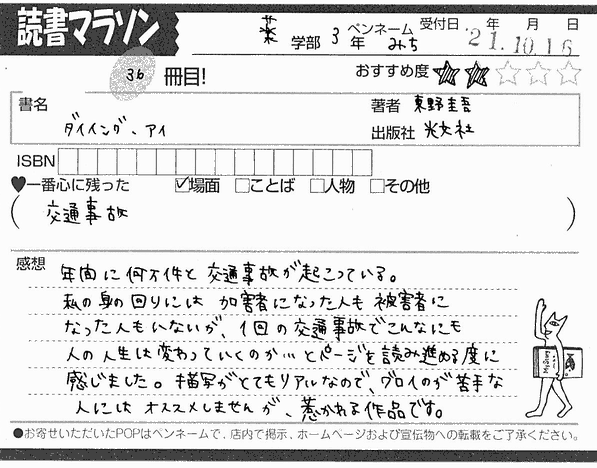 読書マラソン
薬 学部 3 年 ペンネーム みち 受付日 年 月 日
'21.10.16
36 冊目!
おすすめ度 ★★☆☆☆
書名 ダイイング・アイ
著者 東野圭吾
出版社 光文社
ISBN
♥一番心に残った ☑場面 □ことば □人物 □その他
( 交通事故 )
感想
年間に何万件と交通事故が起こっている。
私の身の回りには加害者になった人も被害者に
なった人もいないが、1回の交通事故でこんなにも
人の人生は変わっていくのか…とページを読み進める度に
感じました。描写がとてもリアルなので、グロイのが苦手な
人にはオススメしませんが、惹かれる作品です。
●お寄せいただいたPOPはペンネームで、店内で掲示、ホームページおよび宣伝物への転載をご了承ください。